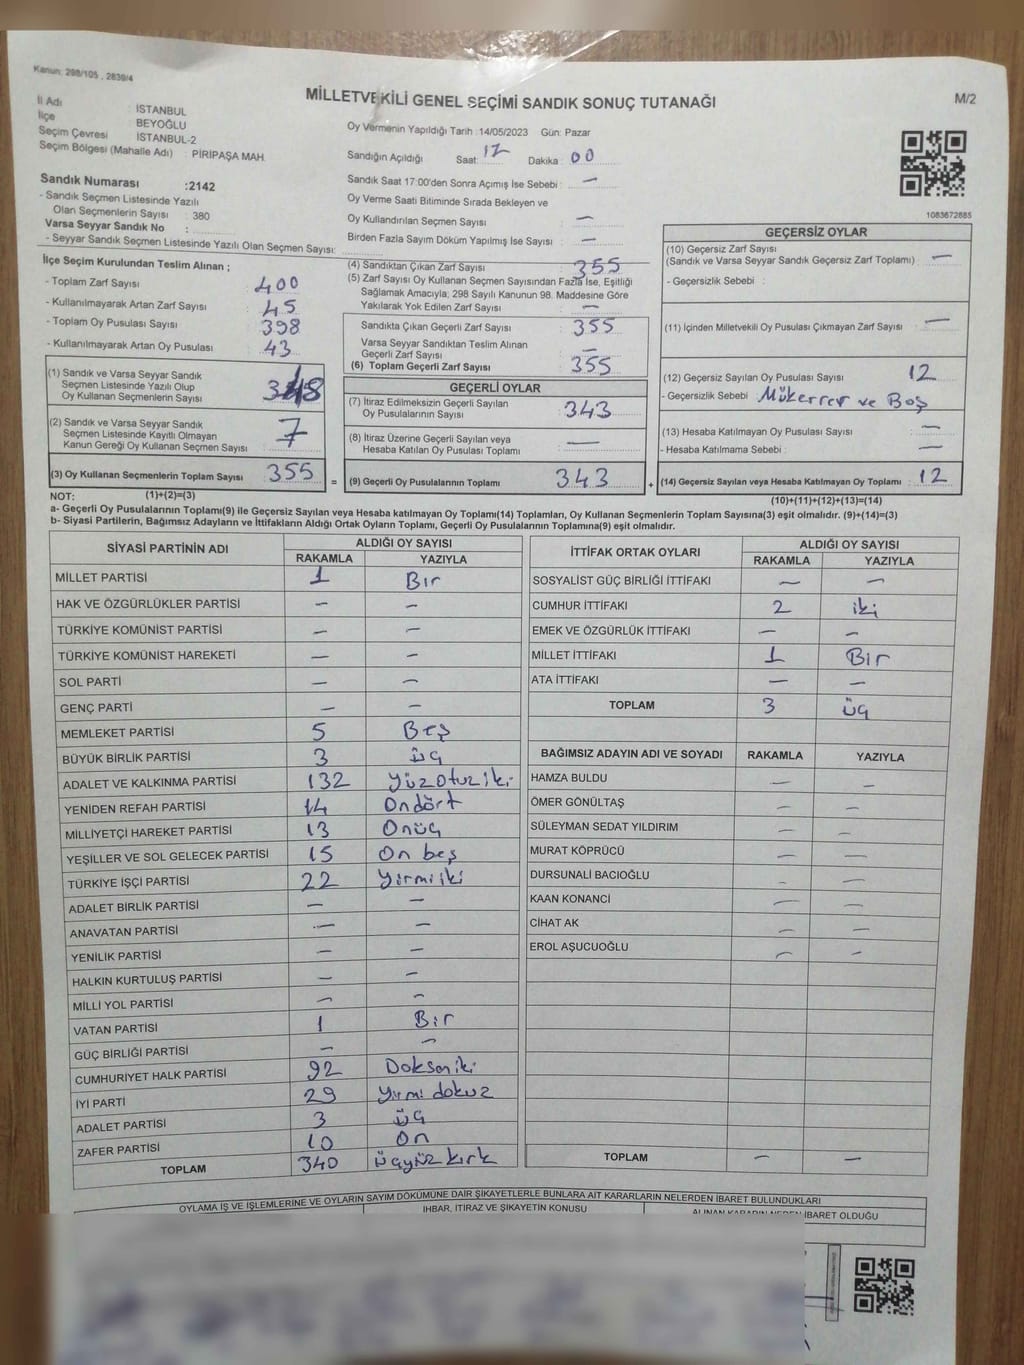 Kanun: 298/105 , 2839/4
MİLLETVEKİLİ GENEL SEÇİMİ SANDIK SONUÇ TUTANAĞI
M/2
İl Adı : İSTANBUL
İlçe : BEYOĞLU
Seçim Çevresi : İSTANBUL-2
Seçim Bölgesi (Mahalle Adı) : PİRİPAŞA MAH.
Sandık Numarası :2142
- Sandık Seçmen Listesinde Yazılı
Olan Seçmenlerin Sayısı : 380
Varsa Seyyar Sandık No :
- Seyyar Sandık Seçmen Listesinde Yazılı Olan Seçmen Sayısı:
Oy Vermenin Yapıldığı Tarih : 14/05/2023 Gün: Pazar
Sandığın Açıldığı Saat: 17 Dakika : 00
Sandık Saat 17:00'den Sonra Açımış İse Sebebi : —
Oy Verme Saati Bitiminde Sırada Bekleyen ve
Oy Kullandırılan Seçmen Sayısı : —
Birden Fazla Sayım Döküm Yapılmış İse Sayısı : —
1083672885
İlçe Seçim Kurulundan Teslim Alınan ;
- Toplam Zarf Sayısı : 400
- Kullanılmayarak Artan Zarf Sayısı : 45
- Toplam Oy Pusulası Sayısı : 398
- Kullanılmayarak Artan Oy Pusulası : 43
(1) Sandık ve Varsa Seyyar Sandık
Seçmen Listesinde Yazılı Olup
Oy Kullanan Seçmenlerin Sayısı : 348
(2) Sandık ve Varsa Seyyar Sandık
Seçmen Listesinde Kayıtlı Olmayan
Kanun Gereği Oy Kullanan Seçmen Sayısı : 7
(3) Oy Kullanan Seçmenlerin Toplam Sayısı 355
(4) Sandıktan Çıkan Zarf Sayısı : 355
(5) Zarf Sayısı Oy Kullanan Seçmen Sayısından Fazla İse, Eşitliği
Sağlamak Amacıyla; 298 Sayılı Kanunun 98. Maddesine Göre
Yakılarak Yok Edilen Zarf Sayısı : —
Sandıkta Çıkan Geçerli Zarf Sayısı : 355
Varsa Seyyar Sandıktan Teslim Alınan
Geçerli Zarf Sayısı : —
(6) Toplam Geçerli Zarf Sayısı : 355
GEÇERLİ OYLAR
(7) İtiraz Edilmeksizin Geçerli Sayılan
Oy Pusulalarının Sayısı : 343
(8) İtiraz Üzerine Geçerli Sayılan veya
Hesaba Katılan Oy Pusulası Toplamı : —
= (9) Geçerli Oy Pusulalarının Toplamı : 343
GEÇERSİZ OYLAR
(10) Geçersiz Zarf Sayısı
(Sandık ve Varsa Seyyar Sandık Geçersiz Zarf Toplamı) : —
- Geçersizlik Sebebi :
(11) İçinden Milletvekili Oy Pusulası Çıkmayan Zarf Sayısı : —
(12) Geçersiz Sayılan Oy Pusulası Sayısı : 12
- Geçersizlik Sebebi : Mükerrer ve Boş
(13) Hesaba Katılmayan Oy Pusulası Sayısı : —
- Hesaba Katılmama Sebebi : —
+ (14) Geçersiz Sayılan veya Hesaba Katılmayan Oy Toplamı : 12
NOT: (1)+(2)=(3)
(10)+(11)+(12)+(13)=(14)
a- Geçerli Oy Pusulalarının Toplamı(9) ile Geçersiz Sayılan veya Hesaba katılmayan Oy Toplamı(14) Toplamları, Oy Kullanan Seçmenlerin Toplam Sayısına(3) eşit olmalıdır. (9)+(14)=(3)
b- Siyasi Partilerin, Bağımsız Adayların ve İttifakların Aldığı Ortak Oyların Toplamı, Geçerli Oy Pusulalarının Toplamına(9) eşit olmalıdır.
SİYASİ PARTİNİN ADI ALDIĞI OY SAYISI
RAKAMLA YAZIYLA
MİLLET PARTİSİ 1 Bir
HAK VE ÖZGÜRLÜKLER PARTİSİ — —
TÜRKİYE KOMÜNİST PARTİSİ — —
TÜRKİYE KOMÜNİST HAREKETİ — —
SOL PARTİ — —
GENÇ PARTİ — —
MEMLEKET PARTİSİ 5 Beş
BÜYÜK BİRLİK PARTİSİ 3 üç
ADALET VE KALKINMA PARTİSİ 132 Yüzotuziki
YENİDEN REFAH PARTİSİ 14 Ondört
MİLLİYETÇİ HAREKET PARTİSİ 13 Onüç
YEŞİLLER VE SOL GELECEK PARTİSİ 15 On beş
TÜRKİYE İŞÇİ PARTİSİ 22 Yirmiiki
ADALET BİRLİK PARTİSİ — —
ANAVATAN PARTİSİ — —
YENİLİK PARTİSİ — —
HALKIN KURTULUŞ PARTİSİ — —
MİLLİ YOL PARTİSİ — —
VATAN PARTİSİ 1 Bir
GÜÇ BİRLİĞİ PARTİSİ — —
CUMHURİYET HALK PARTİSİ 92 Doksaniki
İYİ PARTİ 29 Yirmi dokuz
ADALET PARTİSİ 3 üç
ZAFER PARTİSİ 10 On
TOPLAM 340 üçyüz kırk
İTTİFAK ORTAK OYLARI ALDIĞI OY SAYISI
RAKAMLA YAZIYLA
SOSYALİST GÜÇ BİRLİĞİ İTTİFAKI — —
CUMHUR İTTİFAKI 2 iki
EMEK VE ÖZGÜRLÜK İTTİFAKI — —
MİLLET İTTİFAKI 1 Bir
ATA İTTİFAKI — —
TOPLAM 3 üç
BAĞIMSIZ ADAYIN ADI VE SOYADI RAKAMLA YAZIYLA
HAMZA BULDU — —
ÖMER GÖNÜLTAŞ — —
SÜLEYMAN SEDAT YILDIRIM — —
MURAT KÖPRÜCÜ — —
DURSUNALİ BACIOĞLU — —
KAAN KONANCİ — —
CİHAT AK — —
EROL AŞUCUOĞLU — —
TOPLAM — —
OYLAMA İŞ VE İŞLEMLERİNE VE OYLARIN SAYIM DÖKÜMÜNE DAİR ŞİKAYETLERLE BUNLARA AİT KARARLARIN NELERDEN İBARET BULUNDUKLARI
İHBAR, İTİRAZ VE ŞİKAYETİN KONUSU
ALINAN KARARIN NEDEN İBARET OLDUĞU